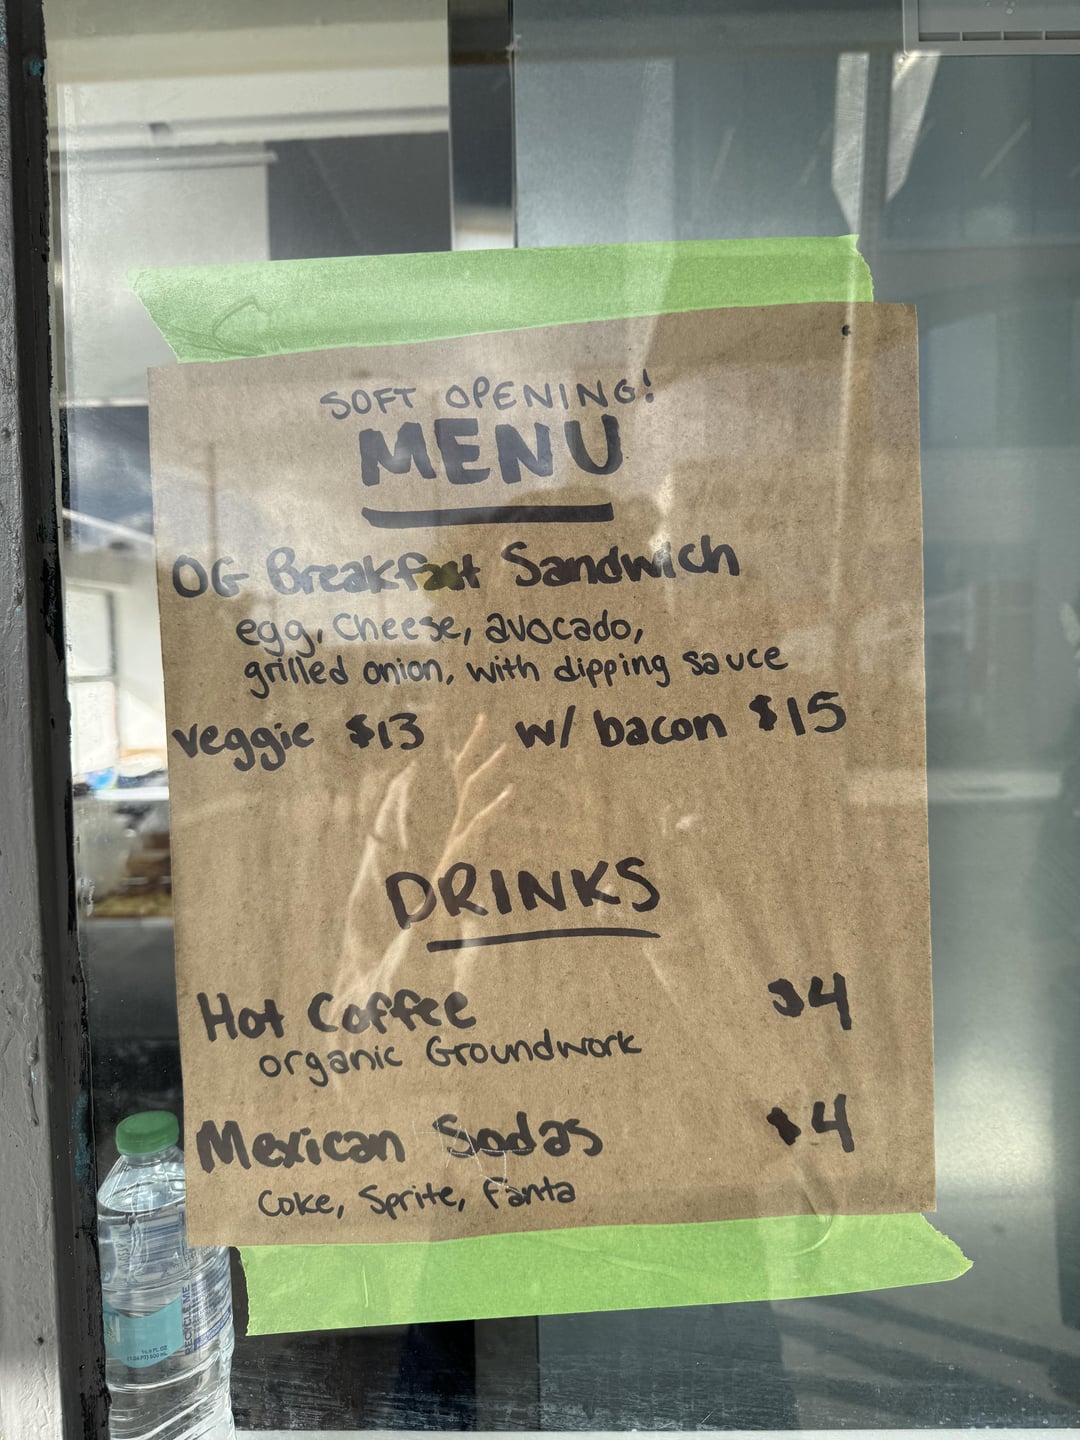 SOFT OPENING!
MENU
OG Breakfast Sandwich
egg, cheese, avocado,
grilled onion, with dipping sauce
veggie $13 w/ bacon $15
DRINKS
Hot Coffee $4
organic Groundwork
Mexican Sodas $4
Coke, Sprite, Fanta
RECYCLE ME
16.9 FL OZ